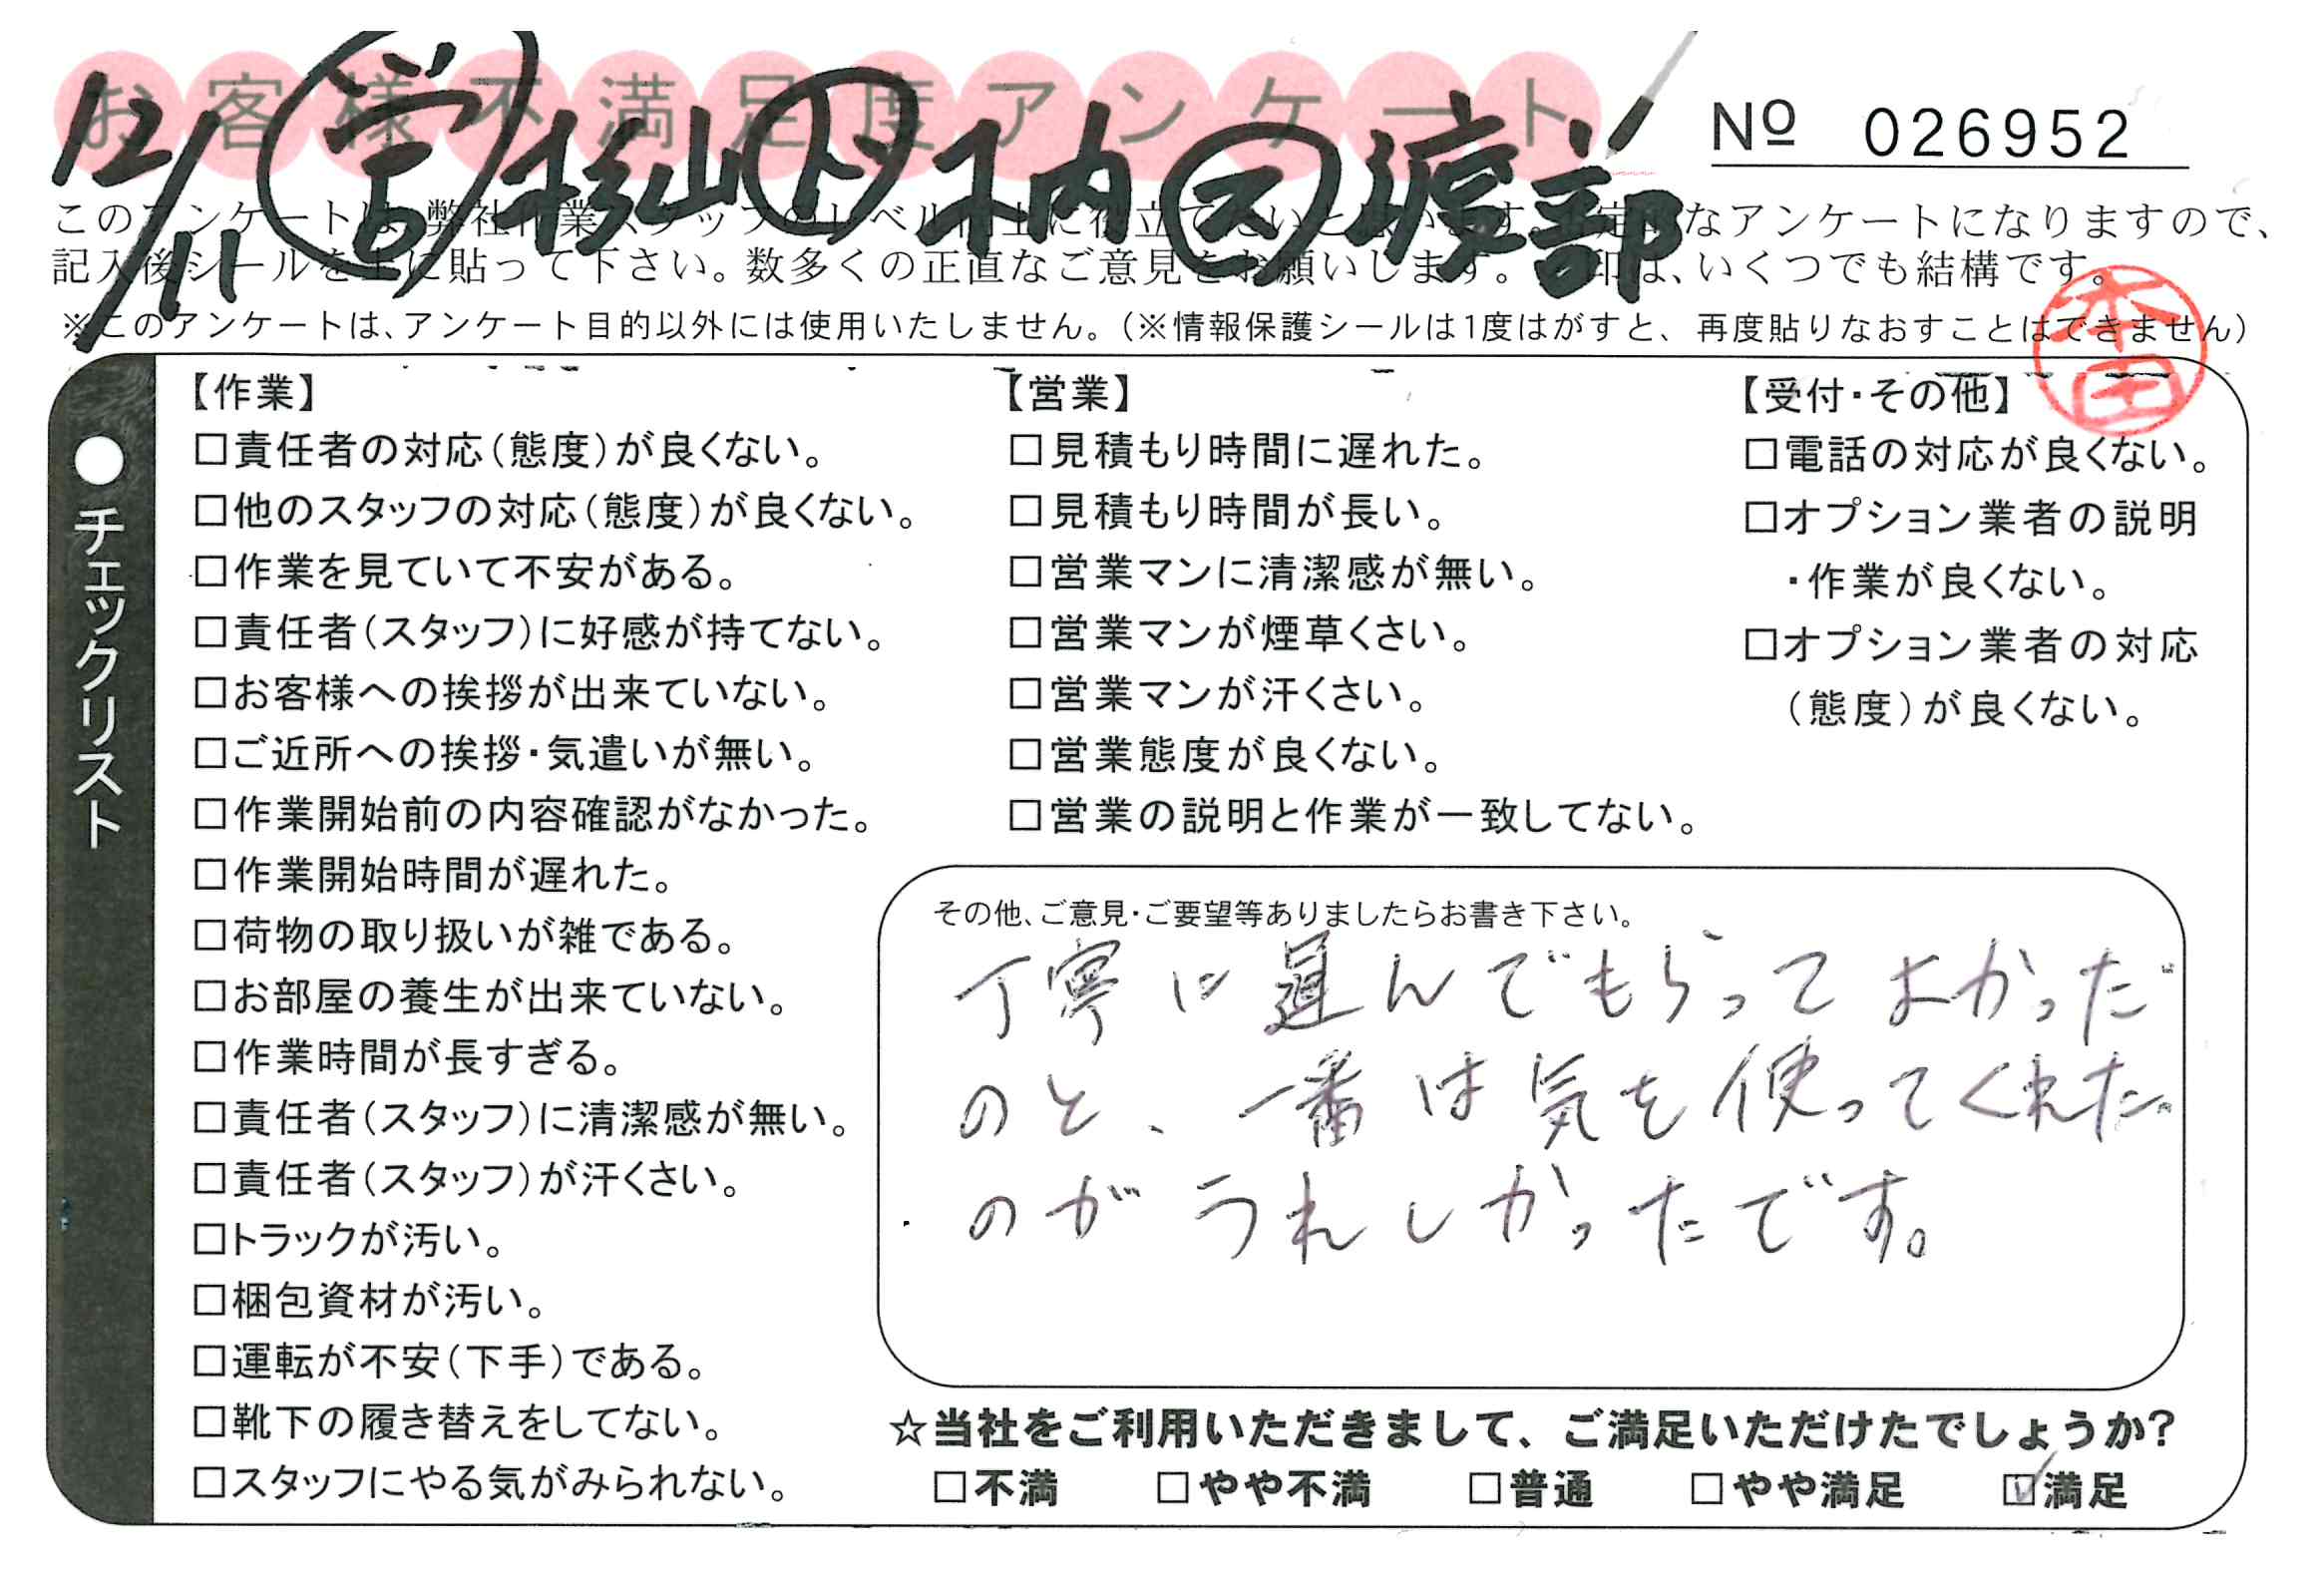 お客様不満足度アンケート
12/11 営 杉山 ト 木内 ス 渡部
Nº 026952
このアンケートは、弊社作業スタッフのレベル向上に役立てたいと思います。 なアンケートになりますので、
記入後シールを上に貼って下さい。数多くの正直なご意見をお願いします。 印は、いくつでも結構です。
※このアンケートは、アンケート目的以外には使用いたしません。(※情報保護シールは1度はがすと、再度貼りなおすことはできません)
本田
●チェックリスト
【作業】
□責任者の対応(態度)が良くない。
□他のスタッフの対応(態度)が良くない。
□作業を見ていて不安がある。
□責任者(スタッフ)に好感が持てない。
□お客様への挨拶が出来ていない。
□ご近所への挨拶・気遣いが無い。
□作業開始前の内容確認がなかった。
□作業開始時間が遅れた。
□荷物の取り扱いが雑である。
□お部屋の養生が出来ていない。
□作業時間が長すぎる。
□責任者(スタッフ)に清潔感が無い。
□責任者(スタッフ)が汗くさい。
□トラックが汚い。
□梱包資材が汚い。
□運転が不安(下手)である。
□靴下の履き替えをしてない。
□スタッフにやる気がみられない。
【営業】
□見積もり時間に遅れた。
□見積もり時間が長い。
□営業マンに清潔感が無い。
□営業マンが煙草くさい。
□営業マンが汗くさい。
□営業態度が良くない。
□営業の説明と作業が一致してない。
【受付・その他】
□電話の対応が良くない。
□オプション業者の説明
・作業が良くない。
□オプション業者の対応
(態度)が良くない。
その他、ご意見・ご要望等ありましたらお書き下さい。
丁寧に運んでもらってよかった
のと、一番は気を使ってくれた
のがうれしかったです。
☆当社をご利用いただきまして、ご満足いただけたでしょうか?
□不満 □やや不満 □普通 □やや満足 ☑満足